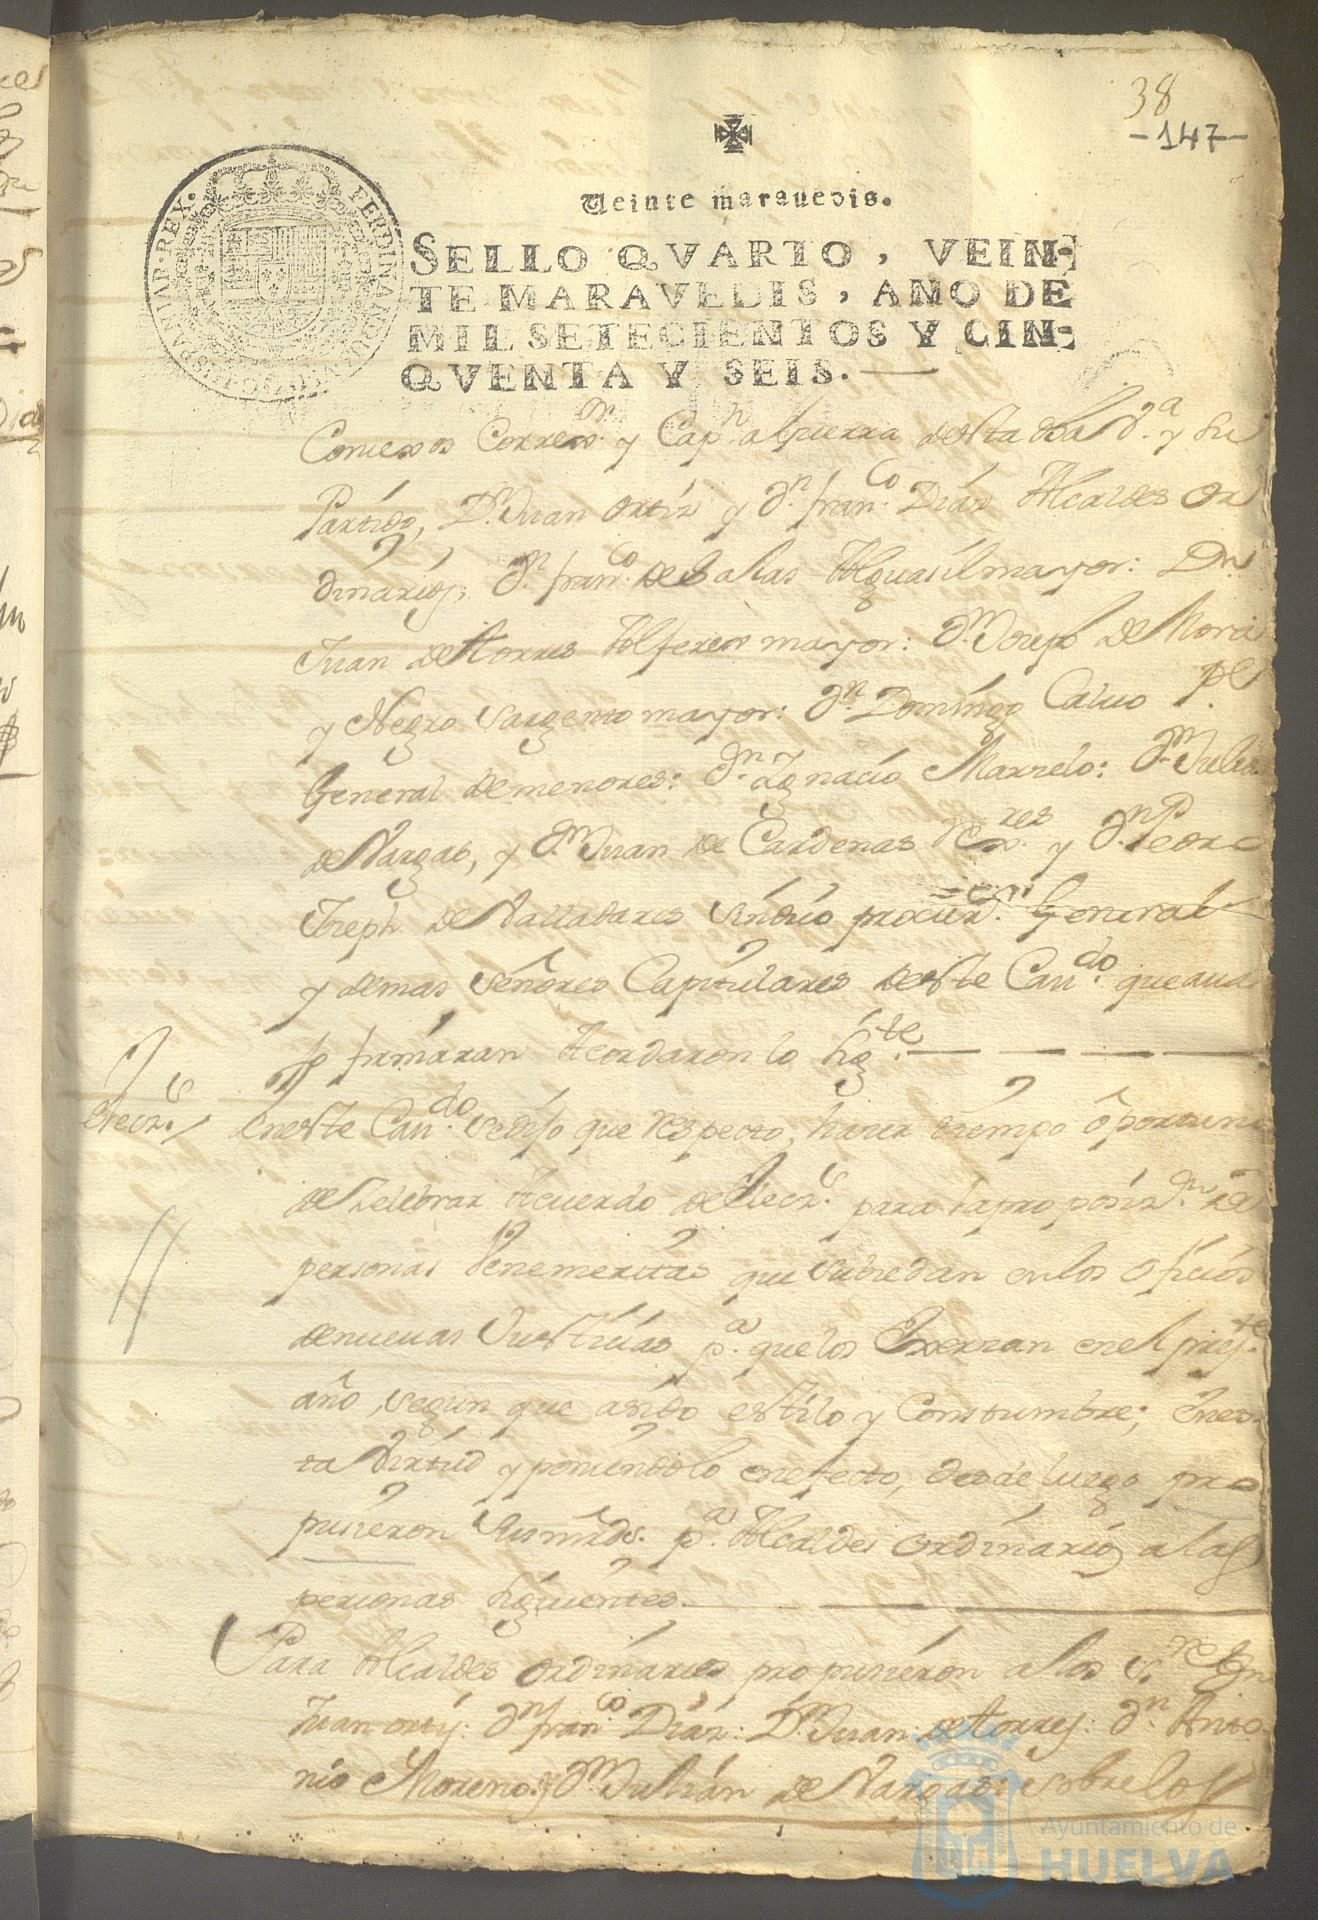 38
-147-
Veinte maravedis.
SELLO QVARTO, VEIN-
TE MARAVEDIS, AÑO DE
MIL SETECIENTOS Y CIN-
QVENTA Y SEIS.
HISPANIAR·REX· FERDINANDUS·VI·D·G·
Correxor. y Capn. a guerra desta dha V.a y su
Partido, Dn. Juan Ortiz y Dn. franco. Diaz Alcaldes Or
dinarios, Dn. franco. de Salas Alguasil mayor: Dn.
Juan de Torres Alferes mayor: Dn. Joseph de Mora
y Negro Sargento mayor: Dn. Domingo Calvo Pe
General de menores: Dn. Ignacio Marzelo: Dn. Julian
de Vargas, y Dn. Juan de Cardenas Rexres. y Dn. Pedro
Joseph de Valladares Sindico procuror. General
y demas Señores Capitulares deste Cavdo. que auaxo
firmaran Acordaron lo sigte.
Elecz.s
Eneste Cavdo. se dijo que respecto, hauer tiempo oportuno
de Zelebrar Acuerdo de Elecz.s para la proposizn. de
personas Venemeritas que subzedan en los ofizios
de nuevas Justicias pa. que los Exerzan en el prexte.
año, segun que asido estilo y Constumbre; En es-
ta Virtud y poniendolo en efecto, desde luego pro
pusieron Sus mrds. pa. Alcaldes ordinarios a las
personas siguientes.
Para Alcaldes ordinarios propusieron a los Sres. Dn
Juan ortiz: Dn. franco. Diaz: Dn. Juan de Torres: Dn. Anto-
nio Moreno y Dn. Julian de Vargas: sobre los
Ayuntamiento de
HUELVA